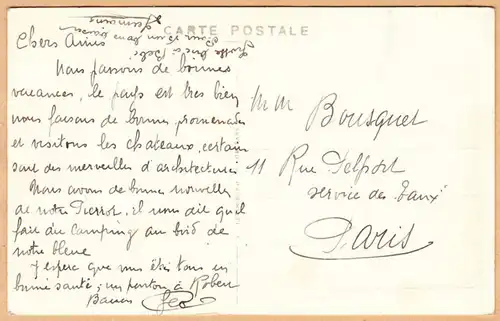 CARTE POSTALE
Chers Amis
Nous passons de bonnes
vacances, le pays est très bien
nous faisons de bonnes promenades
et visitons les chateaux, certain
sont des merveilles d'architecture
Nous avons de bonne nouvelles
de notre Pierrot, il nous dit qu'il
fait du camping au bord de
notre bleue
J'espère que vous êtes tous en
bonne santé, un
M M Bousquet
11 Rue Delport
Service des Eaux
Paris